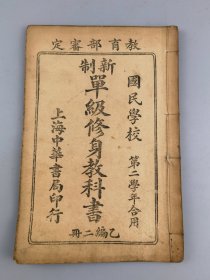 教育部審定
國民學校 第二學年合用
新制
單級修身教科書
乙編二冊
上海中華書局印行